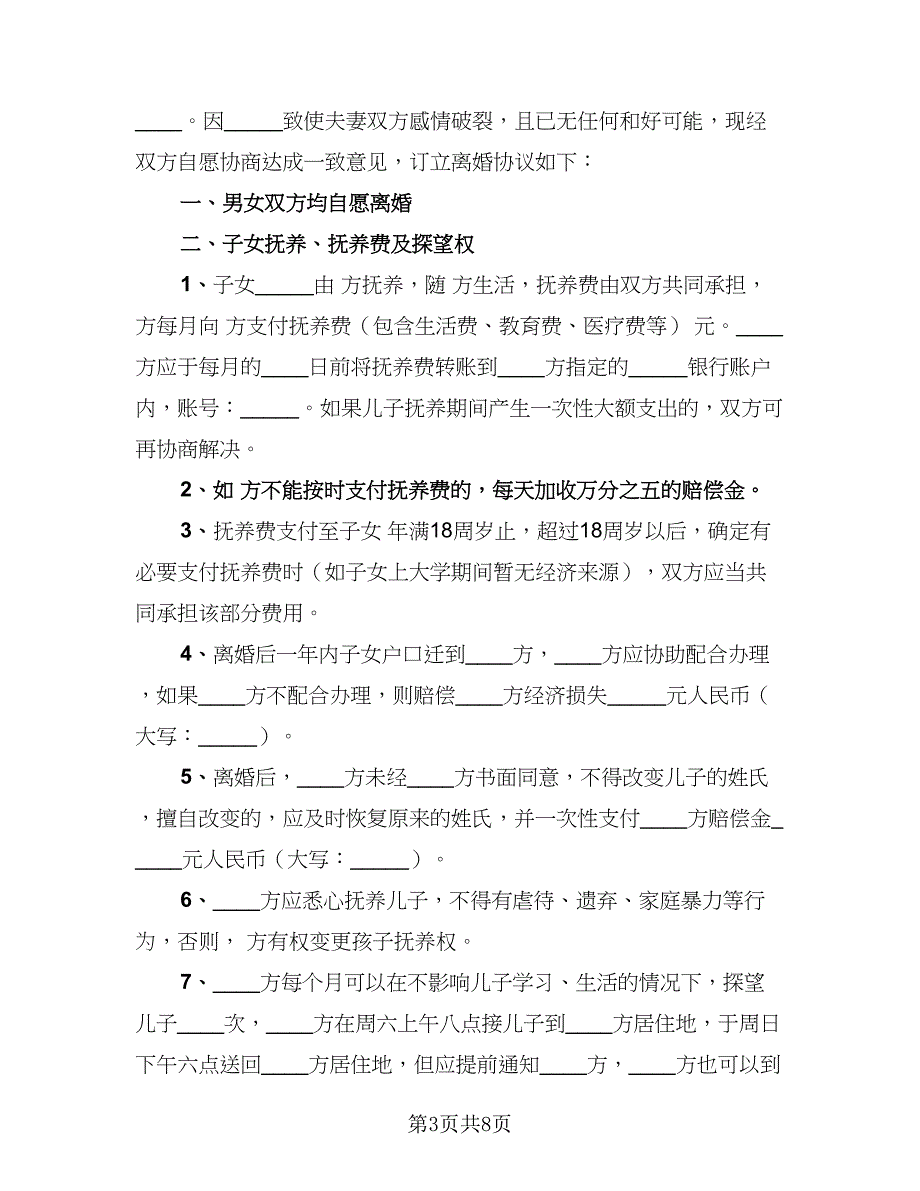 ____。因_____致使夫妻双方感情破裂，且已无任何和好可能，现经
双方自愿协商达成一致意见，订立离婚协议如下：
一、男女双方均自愿离婚
二、子女抚养、抚养费及探望权
1、子女_____由 方抚养，随 方生活，抚养费由双方共同承担，
方每月向 方支付抚养费（包含生活费、教育费、医疗费等） 元。____
方应于每月的____日前将抚养费转账到____方指定的_____银行账户
内，账号：_____。如果儿子抚养期间产生一次性大额支出的，双方可
再协商解决。
2、如 方不能按时支付抚养费的，每天加收万分之五的赔偿金。
3、抚养费支付至子女 年满18周岁止，超过18周岁以后，确定有
必要支付抚养费时（如子女上大学期间暂无经济来源），双方应当共
同承担该部分费用。
4、离婚后一年内子女户口迁到____方，____方应协助配合办理
，如果____方不配合办理，则赔偿____方经济损失_____元人民币（
大写：_____）。
5、离婚后，____方未经____方书面同意，不得改变儿子的姓氏
，擅自改变的，应及时恢复原来的姓氏，并一次性支付____方赔偿金_
____元人民币（大写：_____）。
6、____方应悉心抚养儿子，不得有虐待、遗弃、家庭暴力等行
为，否则， 方有权变更孩子抚养权。
7、____方每个月可以在不影响儿子学习、生活的情况下，探望
儿子____次，____方在周六上午八点接儿子到____方居住地，于周日
下午六点送回____方居住地，但应提前通知____方，____方也可以到
第3页共8页